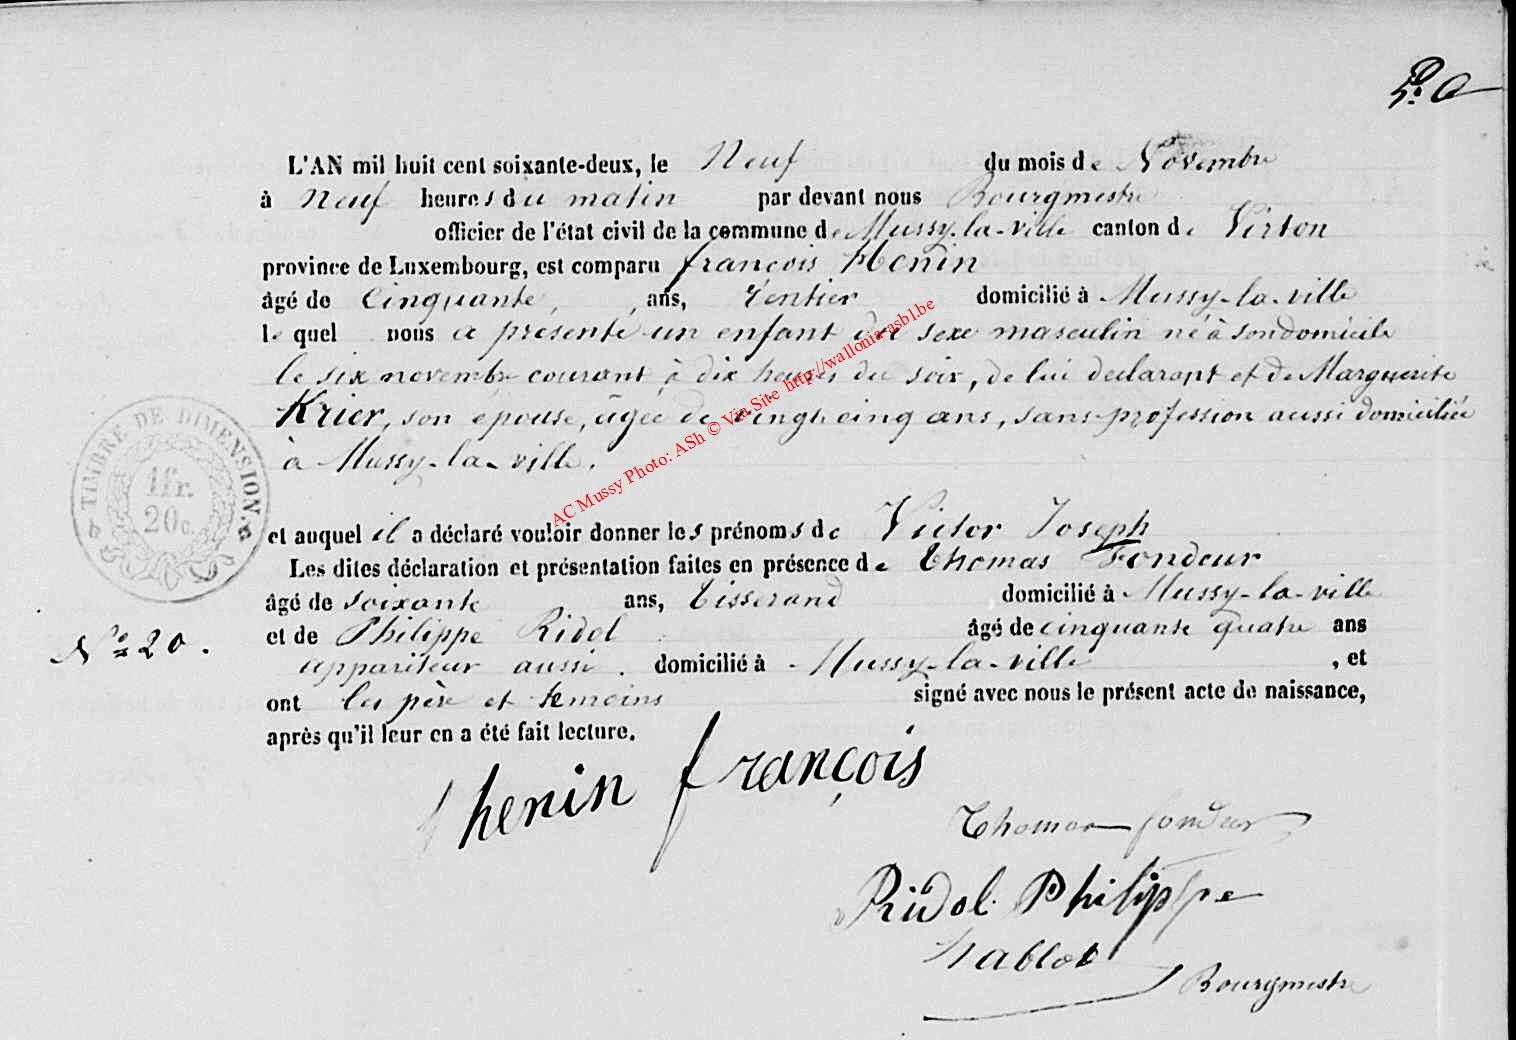 L'AN mil huit cent soixante-deux, le Neuf du mois de Novembre
à Neuf heures du matin par devant nous Bourgmestre
officier de l'état civil de la commune de Mussy-la-ville canton de Virton
province de Luxembourg, est comparu françois Henin
âgé de Cinquante, ans, rentier domicilié à Mussy-la-ville
lequel nous a présenté un enfant du sexe masculin né à son domicile
le six novembre courant à dix heures du soir, de lui déclarant et de Marguerite
Krier, son épouse, âgée de vingt cinq ans, sans profession aussi domiciliée
à Mussy-la-ville.
et auquel il a déclaré vouloir donner les prénoms de Victor Joseph
Les dites déclaration et présentation faites en présence de Thomas Fondeur
âgé de soixante ans, Tisserand domicilié à Mussy-la-ville
et de Philippe Ridol âgé de cinquante quatre ans
appariteur aussi domicilié à Mussy-la-ville, et
ont les père et témoins signé avec nous le présent acte de naissance,
après qu'il leur en a été fait lecture.
TIMBRE DE DIMENSION.
1 fr.
20 c.
N° 20.
henin françois
Thomas fondeur
Ridol Philippe
Bourgmestre
AC Mussy Photo: ASh © Via Site http://wallonia-asbl.be